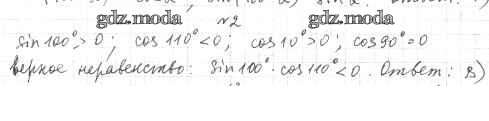 gdz.moda gdz.moda
№2
sin100°>0; cos110°<0; cos10°>0; cos90°=0
Верное неравенство: sin100°·cos110°<0. Ответ: в)